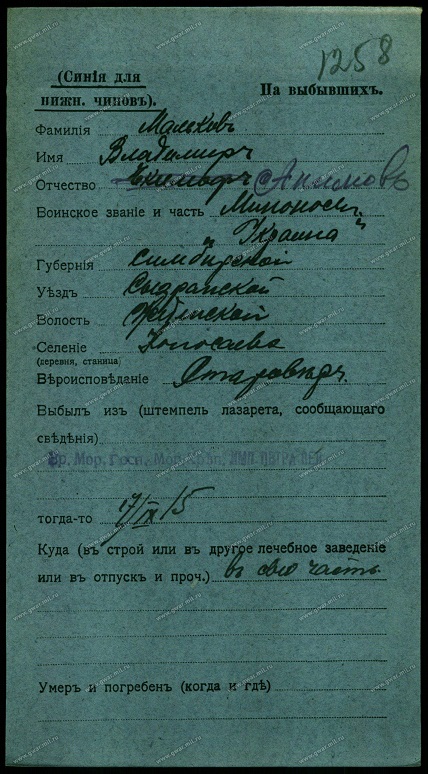 1258
(Синія для
нижн. чиновъ).
На выбывшихъ.
Фамилія Мальковъ
Имя Владимиръ
Отчество Акимовъ
Воинское званіе и часть Миноносец.
"Украина"
Губернія Симбирской
Уѣздъ Сызранской
Волость
Селеніе
(деревня, станица)
Вѣроисповѣданіе Старовѣр.
Выбылъ изъ (штемпель лазарета, сообщающаго
свѣдѣнія)
Вр. Мор. Госп. Мор. ИМП. ПЕТРА ВЕЛ.
тогда-то 17/IX 15
Куда (въ строй или въ другое лечебное заведеніе
или въ отпускъ и проч.) в свою часть
Умеръ и погребенъ (когда и гдѣ)
www.gwar.mil.ru